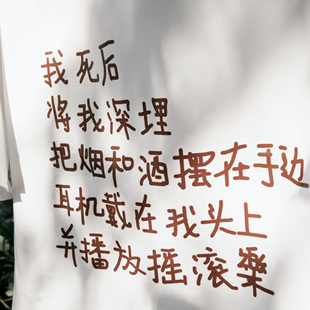 我死后
将我深埋
把烟和酒摆在手边
耳机戴在我头上
并播放摇滚樂